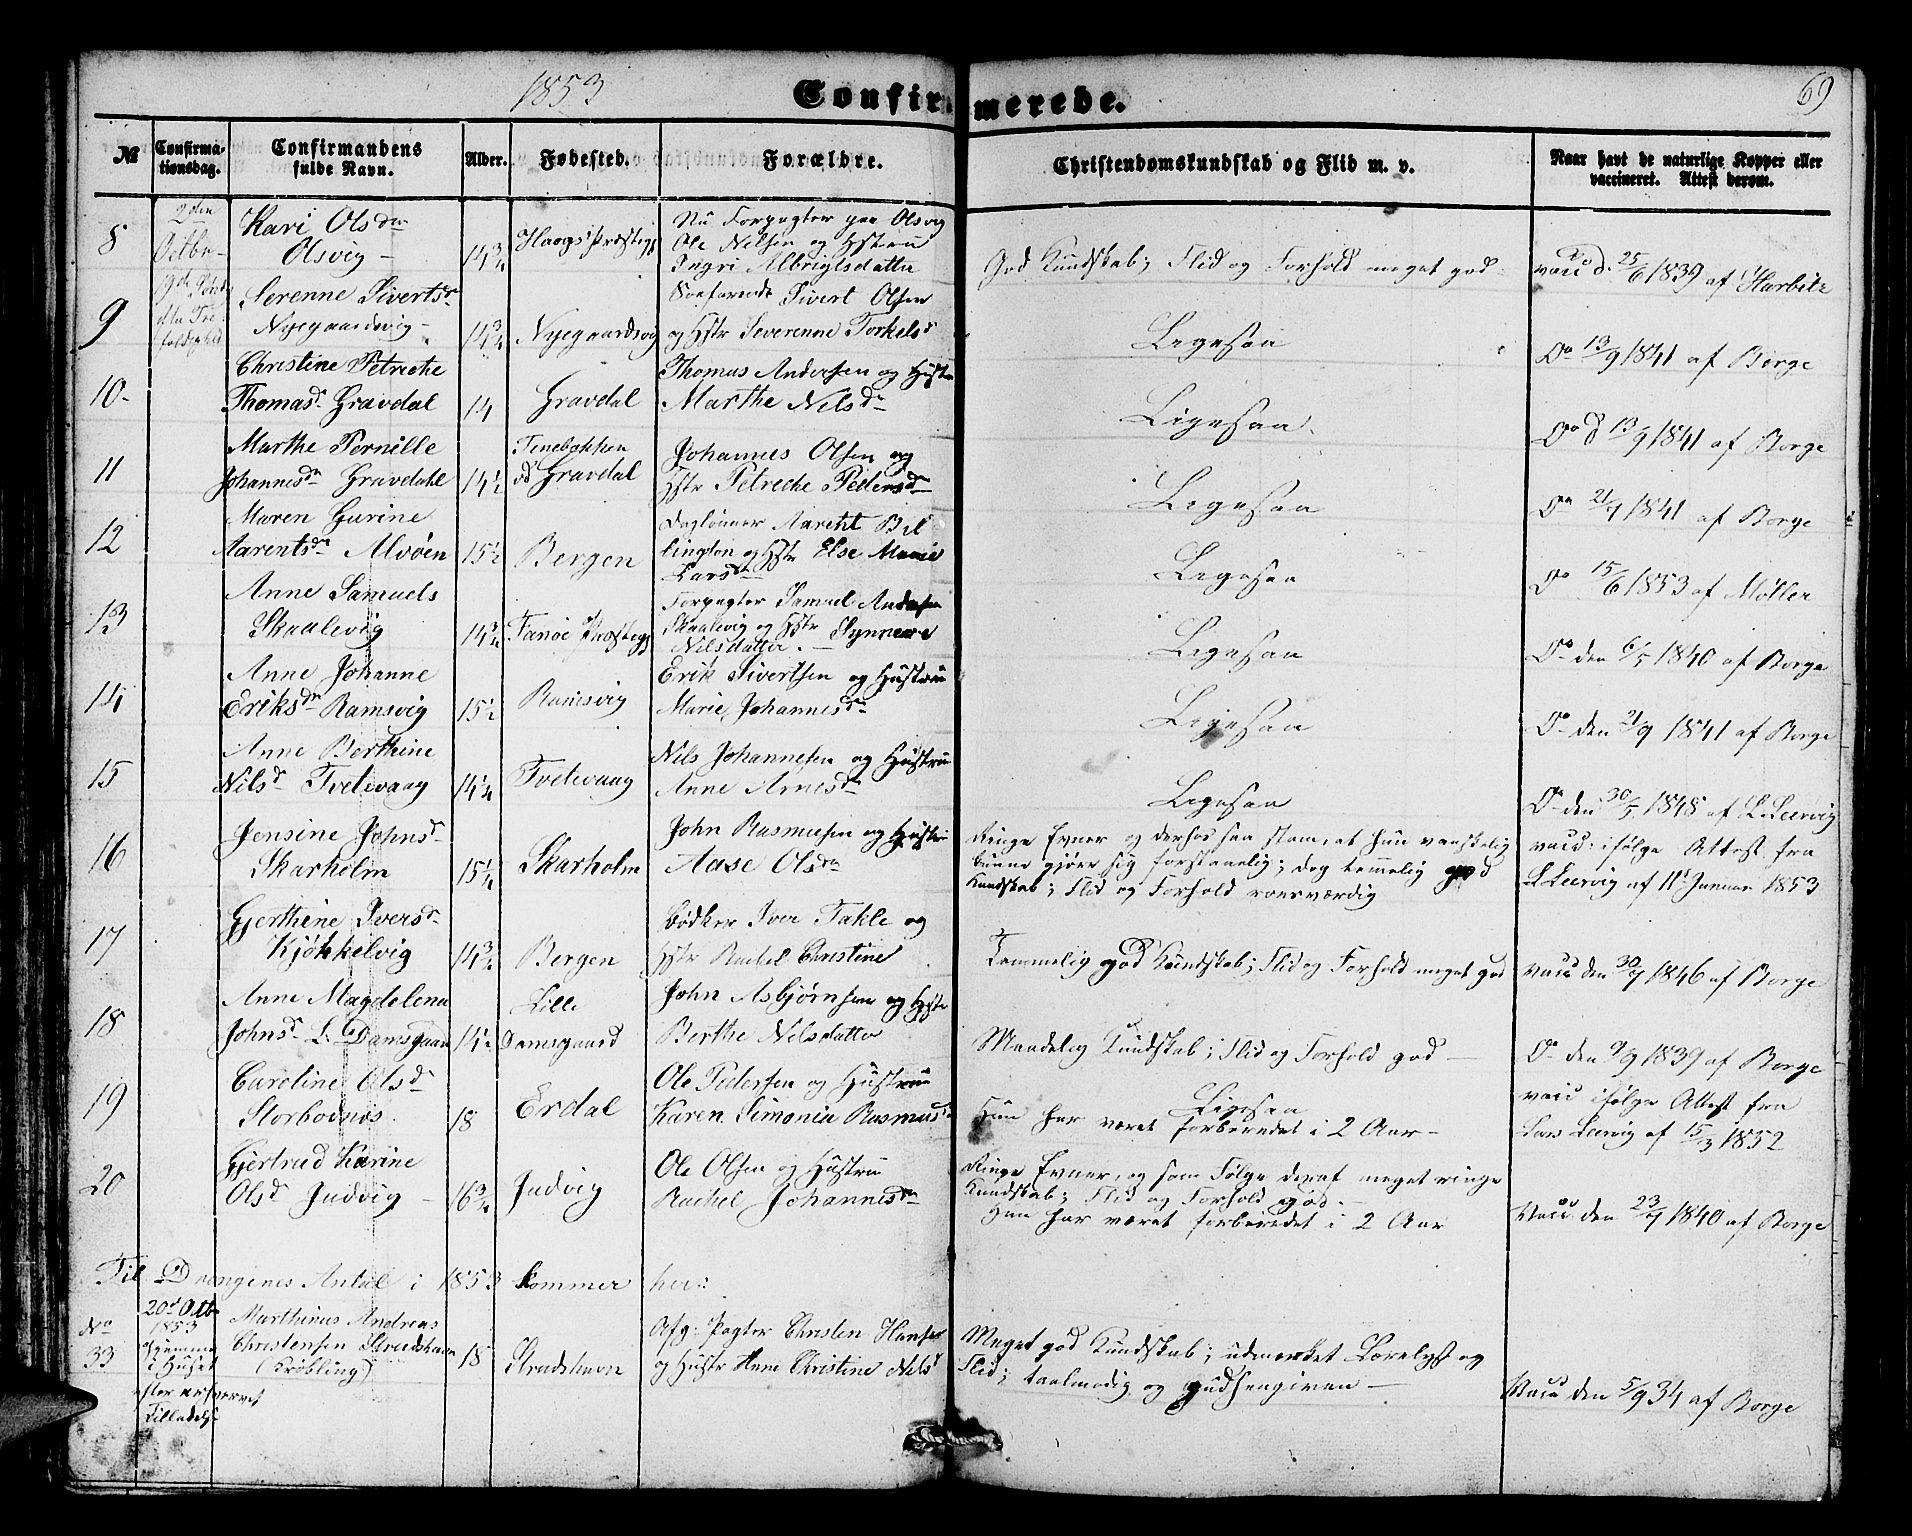 1853 Confirmerede. 69
№ Confirma-
tionsdag. Confirmandens
fulde Navn. Alder. Fødested. Forældre. Christendomskundskab og Flid m. v. Naar havt de naturlige Kopper eller
vaccineret. Attest derom.
8 2den
Octbr Kari Olsdr
Olsvig 14 3/4 Haogs Præstegj Nu Forpagter paa Olsvig
Ole Nilsen og Hstru
Ingri Albrigtsdatter God Kundskab; Flid og Forhold meget god vacc d. 25/6 1839 af Harbitz
9 19de Sønd
efter Tre-
foldighed Serenne Siverts dr
Nyegaardsvig 14 3/4 Nyegaardsvig Søefarende Sivert Olsen
og Hstr Severenne Torkelsd Ligesaa Do 13/9 1841 af Borge
10 Christine Petreche
Thomasdr Gravdal 14 Gravdal Thomas Andersen og Hustru
Marthe Nilsdr Ligesaa Do d 13/9 1841 af Borge
11 Marthe Pernille
Johannesdr Gravdahl 14 1/2 Tinebakken
Gravdal Johannes Olsen og
Hstr Petreche Pedersdr Ligesaa Do 21/9 1841 af Borge
12 Maren Gurine
Aarentsdr Alvøen 15 1/2 Bergen Daglønner Aarent Bil
lington og Hstr Else Marie
Larsdr Ligesaa Do 15/6 1853 af Møller
13 Anne Samuels
Skaalevig 14 3/4 Fanøe Præstegj Forpagter Samuel Andersen
Skaalevig og Hstr Synneve
Nilsdatter. Ligesaa Do den 6/5 1840 af Borge
14 Anne Johanne
Eriksdr Ramsvig 15 1/2 Ramsvig Erik Sivertsen og Hustru
Marie Johannesdr Ligesaa Do den 21/9 1841 af Borge
15 Anne Berthine
Nilsd Tvetevaag 14 1/4 Tvetevaag Nils Johannesen og Hustru
Anne Arnesdr Ligesaa Do den 30/5 1848 af L. Leervig
16 Jensine Johnsd
Skarholm 15 1/4 Skarholm John Rasmusen og Hustru
Aase Olsdr Ringe Evner og derhos saa stam, at hun vanskelig
kunne gjøre sig forstaaelig; dog temmelig god
Kundskab; Flid og Forhold roesværdig vacc: ifølge Attest fra
L Leervig af 11t Januar 1853
17 Gjerthine Iversdr
Kjøkkelvig 14 3/4 Bergen Bødker Iver Takle og
Hstr Rachel Christine Temmelig god Kundskab; Flid og Forhold meget god vacc den 30/7 1846 af Borge
18 Anne Magdelena
Johnsd L. Damsgaard 14 1/2 Lille
Damsgaard John Asbjørnsen og Hstr
Berthe Nilsdatter Maadelig Kundskab; Flid og Forhold god Do den 9/9 1839 af Borge
19 Caroline Olsd
Storbodnes 18 Erdal Ole Pedersen og Hustru
Karen Simonia Rasmusd Ligesaa
Hun har været forberedet i 2 Aar vacc ifølge Attest fra
Lars Leervig af 15/3 1852
20 Gjertrud Karine
Olsd Judvig 16 3/4 Judvig Ole Olsen og Hustru
Rachel Johannesdr Ringe Evner, og som Følge deraf meget ringe
Kundskab; Flid og Forhold god
Hun har været forberedet i 2 Aar Vacc. den 23/7 1840 af Borge
Til Drengenes Antal i 1853 kommer her:
No
33 20d Octb
1853
hjemme
i Huset
efter erhvervet
Tilladelse Marthinus Andreas
Christensen Strudshavn
(Krøbling) 18 Strudshavn Afg: Pagter Christen Hansen
og Hustr Anne Christine Nilsd Meget god Kundskab; udmærket Lærelyst og
Flid; taalmodig og gudhengiven Vacc den 5/9 34 af Borge